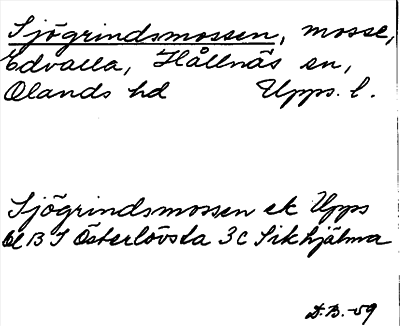 Sjögrindsmossen, mosse,
Edvalla, Hållnäs sn,
Olands hd Upps. l.
Sjögrindsmossen ek Upps
bl B I Österlövsta 3c Sikhjälma
D.B. -59